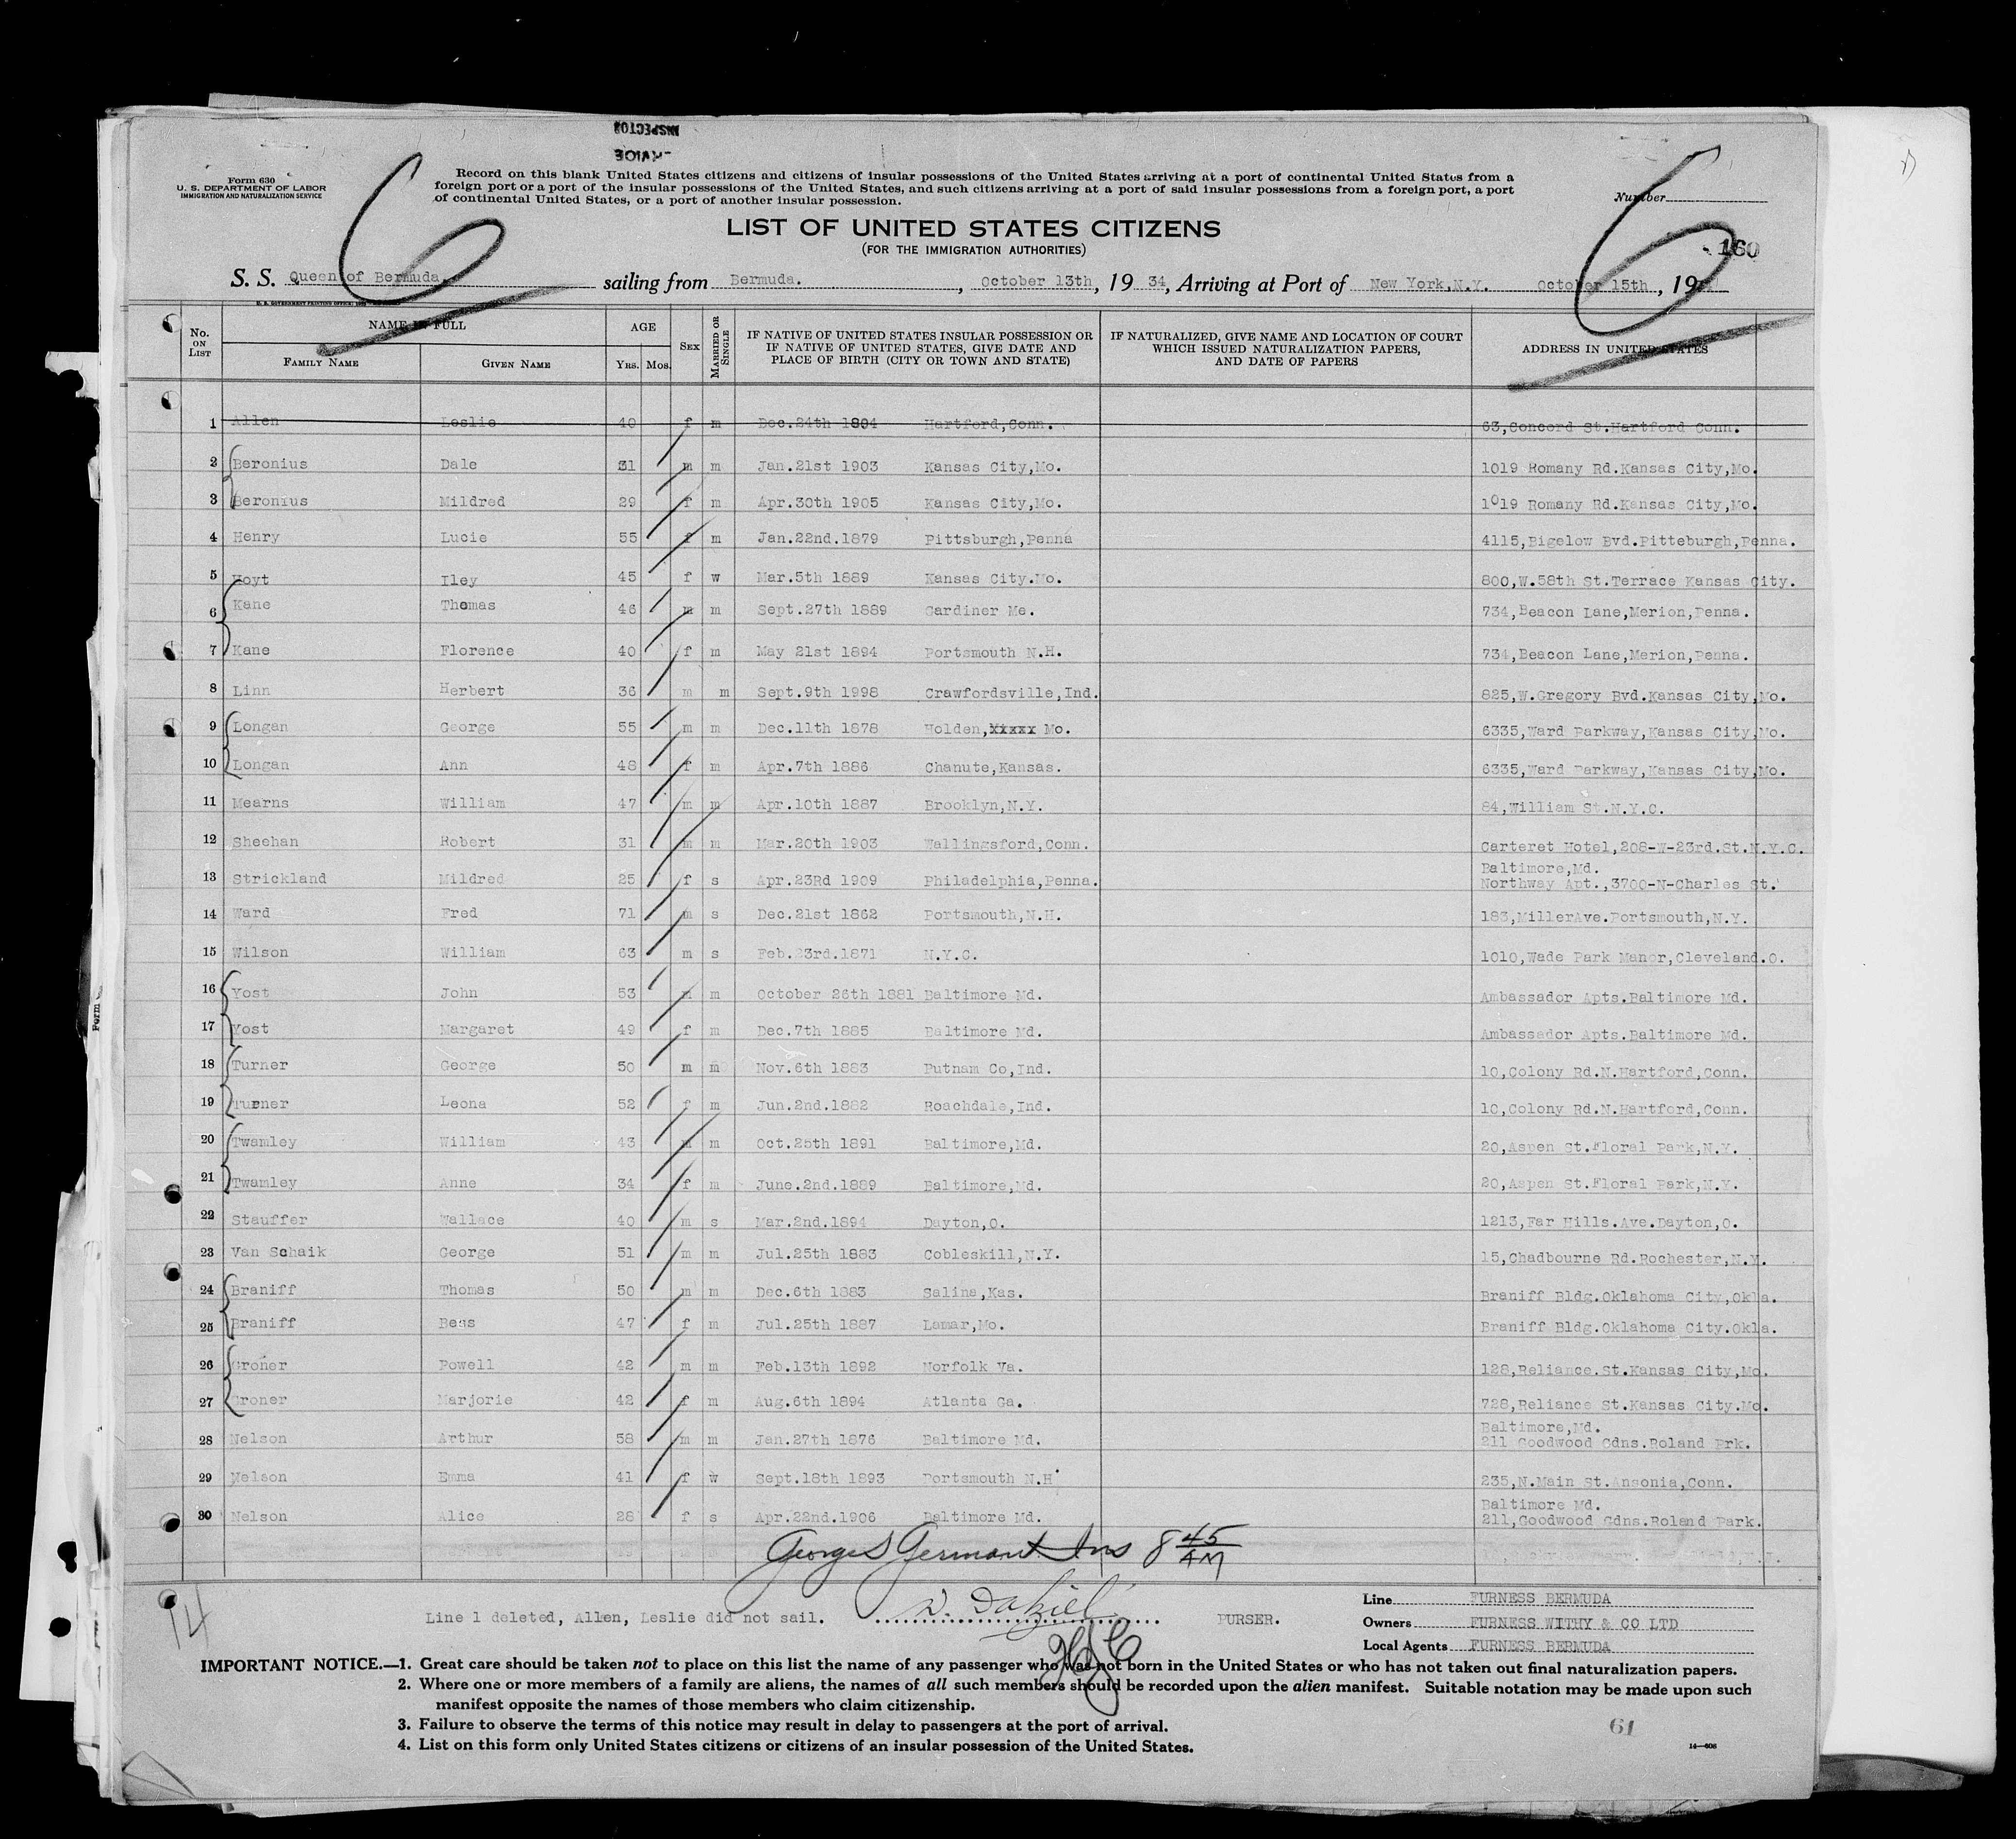 INSPECTOR
Form 630
U. S. DEPARTMENT OF LABOR
IMMIGRATION AND NATURALIZATION SERVICE
Record on this blank United States citizens and citizens of insular possessions of the United States arriving at a port of continental United States from a
foreign port or a port of the insular possessions of the United States, and such citizens arriving at a port of said insular possessions from a foreign port, a port
of continental United States, or a port of another insular possession.
Number
LIST OF UNITED STATES CITIZENS
(FOR THE IMMIGRATION AUTHORITIES)
6
6
160
S. S. Queen of Bermuda, sailing from Bermuda. , October 13th, 19 34, Arriving at Port of New York,N.Y. October 15th, 19
No. ON LIST NAME IN FULL FAMILY NAME GIVEN NAME AGE YRS. MOS. SEX MARRIED OR SINGLE IF NATIVE OF UNITED STATES INSULAR POSSESSION OR IF NATIVE OF UNITED STATES, GIVE DATE AND PLACE OF BIRTH (CITY OR TOWN AND STATE) IF NATURALIZED, GIVE NAME AND LOCATION OF COURT WHICH ISSUED NATURALIZATION PAPERS, AND DATE OF PAPERS ADDRESS IN UNITED STATES
1 Allen Leslie 40 f m Dec.24th 1894 Hartford,Conn. 63,Concord St.Hartford Conn.
2 Beronius Dale 31 m m Jan.21st 1903 Kansas City,Mo. 1019 Romany Rd.Kansas City,Mo.
3 Beronius Mildred 29 f m Apr.30th 1905 Kansas City,Mo. 1019 Romany Rd.Kansas City,Mo.
4 Henry Lucie 55 f m Jan.22nd.1879 Pittsburgh,Penna 4115,Bigelow Bvd.Pitteburgh,Penna.
5 Hoyt Iley 45 f w Mar.5th 1889 Kansas City.Mo. 800,W.58th St.Terrace Kansas City.
6 Kane Thomas 46 m m Sept.27th 1889 Gardiner Me. 734,Beacon Lane,Merion,Penna.
7 Kane Florence 40 f m May 21st 1894 Portsmouth N.H. 734,Beacon Lane,Merion,Penna.
8 Linn Herbert 36 m m Sept.9th 1998 Crawfordsville,Ind. 825,W.Gregory Bvd.Kansas City,Mo.
9 Longan George 55 m m Dec.11th 1878 Holden,xxxxx Mo. 6335,Ward Parkway,Kansas City,Mo.
10 Longan Ann 48 f m Apr.7th 1886 Chanute,Kansas. 6335,Ward Parkway,Kansas City,Mo.
11 Mearns William 47 m m Apr.10th 1887 Brooklyn,N.Y. 84,William St.N.Y.C.
12 Sheehan Robert 31 m m Mar.20th 1903 Wallingsford,Conn. Carteret Hotel,208-W-23rd.St.N.Y.C.
Baltimore,Md.
13 Strickland Mildred 25 f s Apr.23Rd 1909 Philadelphia,Penna. Northway Apt.,3700-N-Charles St.
14 Ward Fred 71 m s Dec.21st 1862 Portsmouth,N.H. 183,MillerAve.Portsmouth,N.Y.
15 Wilson William 63 m s Feb.23rd.1871 N.Y.C. 1010,Wade Park Manor,Cleveland.O.
16 Yost John 53 m m October 26th 1881 Baltimore Md. Ambassador Apts.Baltimore Md.
17 Yost Margaret 49 f m Dec.7th 1885 Baltimore Md. Ambassador Apts.Baltimore Md.
18 Turner George 50 m m Nov.6th 1883 Putnam Co,Ind. 10,Colony Rd.N.Hartford,Conn.
19 Turner Leona 52 f m Jun.2nd.1882 Roachdale,Ind. 10,Colony Rd.N.Hartford,Conn.
20 Twamley William 43 m m Oct.25th 1891 Baltimore,Md. 20,Aspen St.Floral Park,N.Y.
21 Twamley Anne 34 f m June.2nd.1889 Baltimore,Md. 20,Aspen St.Floral Park,N.Y.
22 Stauffer Wallace 40 m s Mar.2nd.1894 Dayton,O. 1213,Far Hills.Ave.Dayton,O.
23 Van Schaik George 51 m m Jul.25th 1883 Cobleskill,N.Y. 15,Chadbourne Rd.Rochester,N.Y.
24 Braniff Thomas 50 m m Dec.6th 1883 Salina,Kas. Braniff Bldg.Oklahoma City,Okla.
25 Braniff Bess 47 f m Jul.25th 1887 Lamar,Mo. Braniff Bldg.Oklahoma City.Okla.
26 Groner Powell 42 m m Feb.13th 1892 Norfolk Va. 128,Reliance.St.Kansas City,Mo.
27 Groner Marjorie 42 f m Aug.6th 1894 Atlanta Ga. 728,Reliance St.Kansas City.Mo.
Baltimore,Md.
28 Nelson Arthur 58 m m Jan.27th 1876 Baltimore Md. 211 Goodwood Gdns.Roland Prk.
29 Nelson Emma 41 f w Sept.18th 1893 Portsmouth N.H 235,N.Main St.Ansonia,Conn.
Baltimore Md.
30 Nelson Alice 28 f s Apr.22nd.1906 Baltimore Md. 211,Goodwood Gdns.Roland Park.
George Germant Ins 8 45 AM
14
Line 1 deleted, Allen, Leslie did not sail. PURSER.
Line FURNESS BERMUDA
Owners FURNESS WITHY & CO LTD
Local Agents FURNESS BERMUDA
IMPORTANT NOTICE.—1. Great care should be taken not to place on this list the name of any passenger who was not born in the United States or who has not taken out final naturalization papers.
2. Where one or more members of a family are aliens, the names of all such members should be recorded upon the alien manifest. Suitable notation may be made upon such
manifest opposite the names of those members who claim citizenship.
3. Failure to observe the terms of this notice may result in delay to passengers at the port of arrival.
4. List on this form only United States citizens or citizens of an insular possession of the United States.
61
14—606